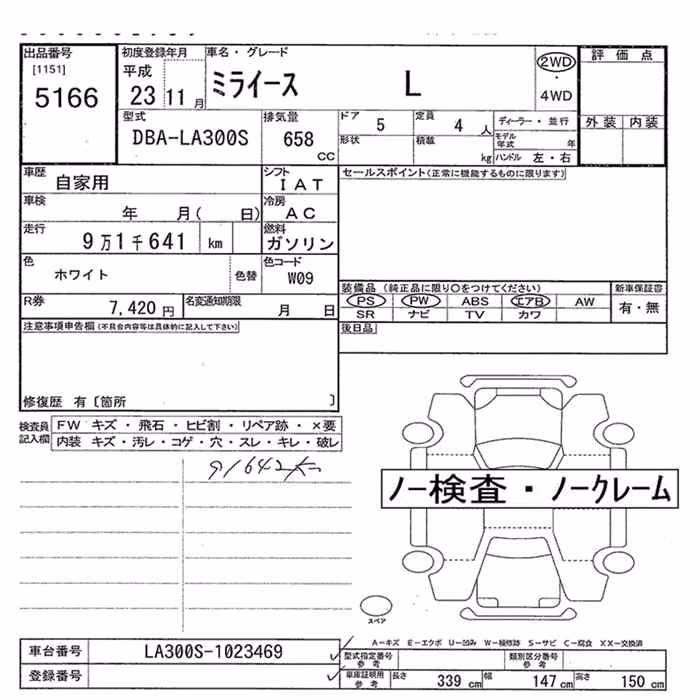 出品番号 初度登録年月 車名・グレード 評価点
[1151] 平成 ミライース L 2WD
・
5166 23 11 月 4WD
型式 排気量 ドア 5 定員 4 人 ディーラー・並行 外装 内装
DBA-LA300S 658 cc 形状 積載 kg モデル年式 年
ハンドル 左・右
車歴 自家用 シフト IAT セールスポイント(正常に機能するものに限ります)
車検 年 月( 日) 冷房 AC
走行 9万1千641 km 燃料 ガソリン
色 ホワイト 色替 色コード W09
装備品(純正品に限り○をつけてください) 新車保証書
R券 7,420円 名変通知期限 月 日 PS PW ABS エアB AW 有・無
SR ナビ TV カワ
注意事項申告欄(不具合内容等は具体的に記入して下さい) 後日品
修復歴 有〔箇所 〕
検査員記入欄 FW キズ・飛石・ヒビ割・リペア跡・×要
内装 キズ・汚レ・コゲ・穴・スレ・キレ・破レ
91642km
ノー検査・ノークレーム
スペア
A-キズ E-エクボ U-凹み W-補修跡 S-サビ C-腐食 XX-交換済
車台番号 LA300S-1023469 型式指定番号 参考 類別区分番号 参考
登録番号 車庫証明用 参考 長さ 339 cm 幅 147 cm 高さ 150 cm